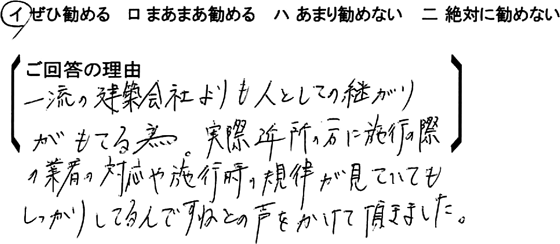 イ ぜひ勧める ロ まあまあ勧める ハ あまり勧めない 二 絶対に勧めない
ご回答の理由
一流の建築会社よりも人としての継がり
がもてる為。実際近所の方に施行の際
の業者の対応や施行時の規律が見ていても
しっかりしてるんですねとの声をかけて頂きました。